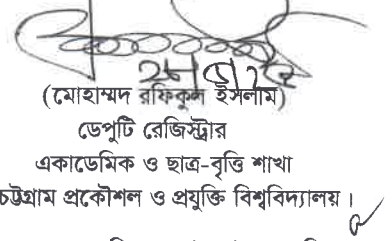 (মোহাম্মদ রফিকুল ইসলাম)
ডেপুটি রেজিস্ট্রার
একাডেমিক ও ছাত্র-বৃত্তি শাখা
চট্টগ্রাম প্রকৌশল ও প্রযুক্তি বিশ্ববিদ্যালয়।